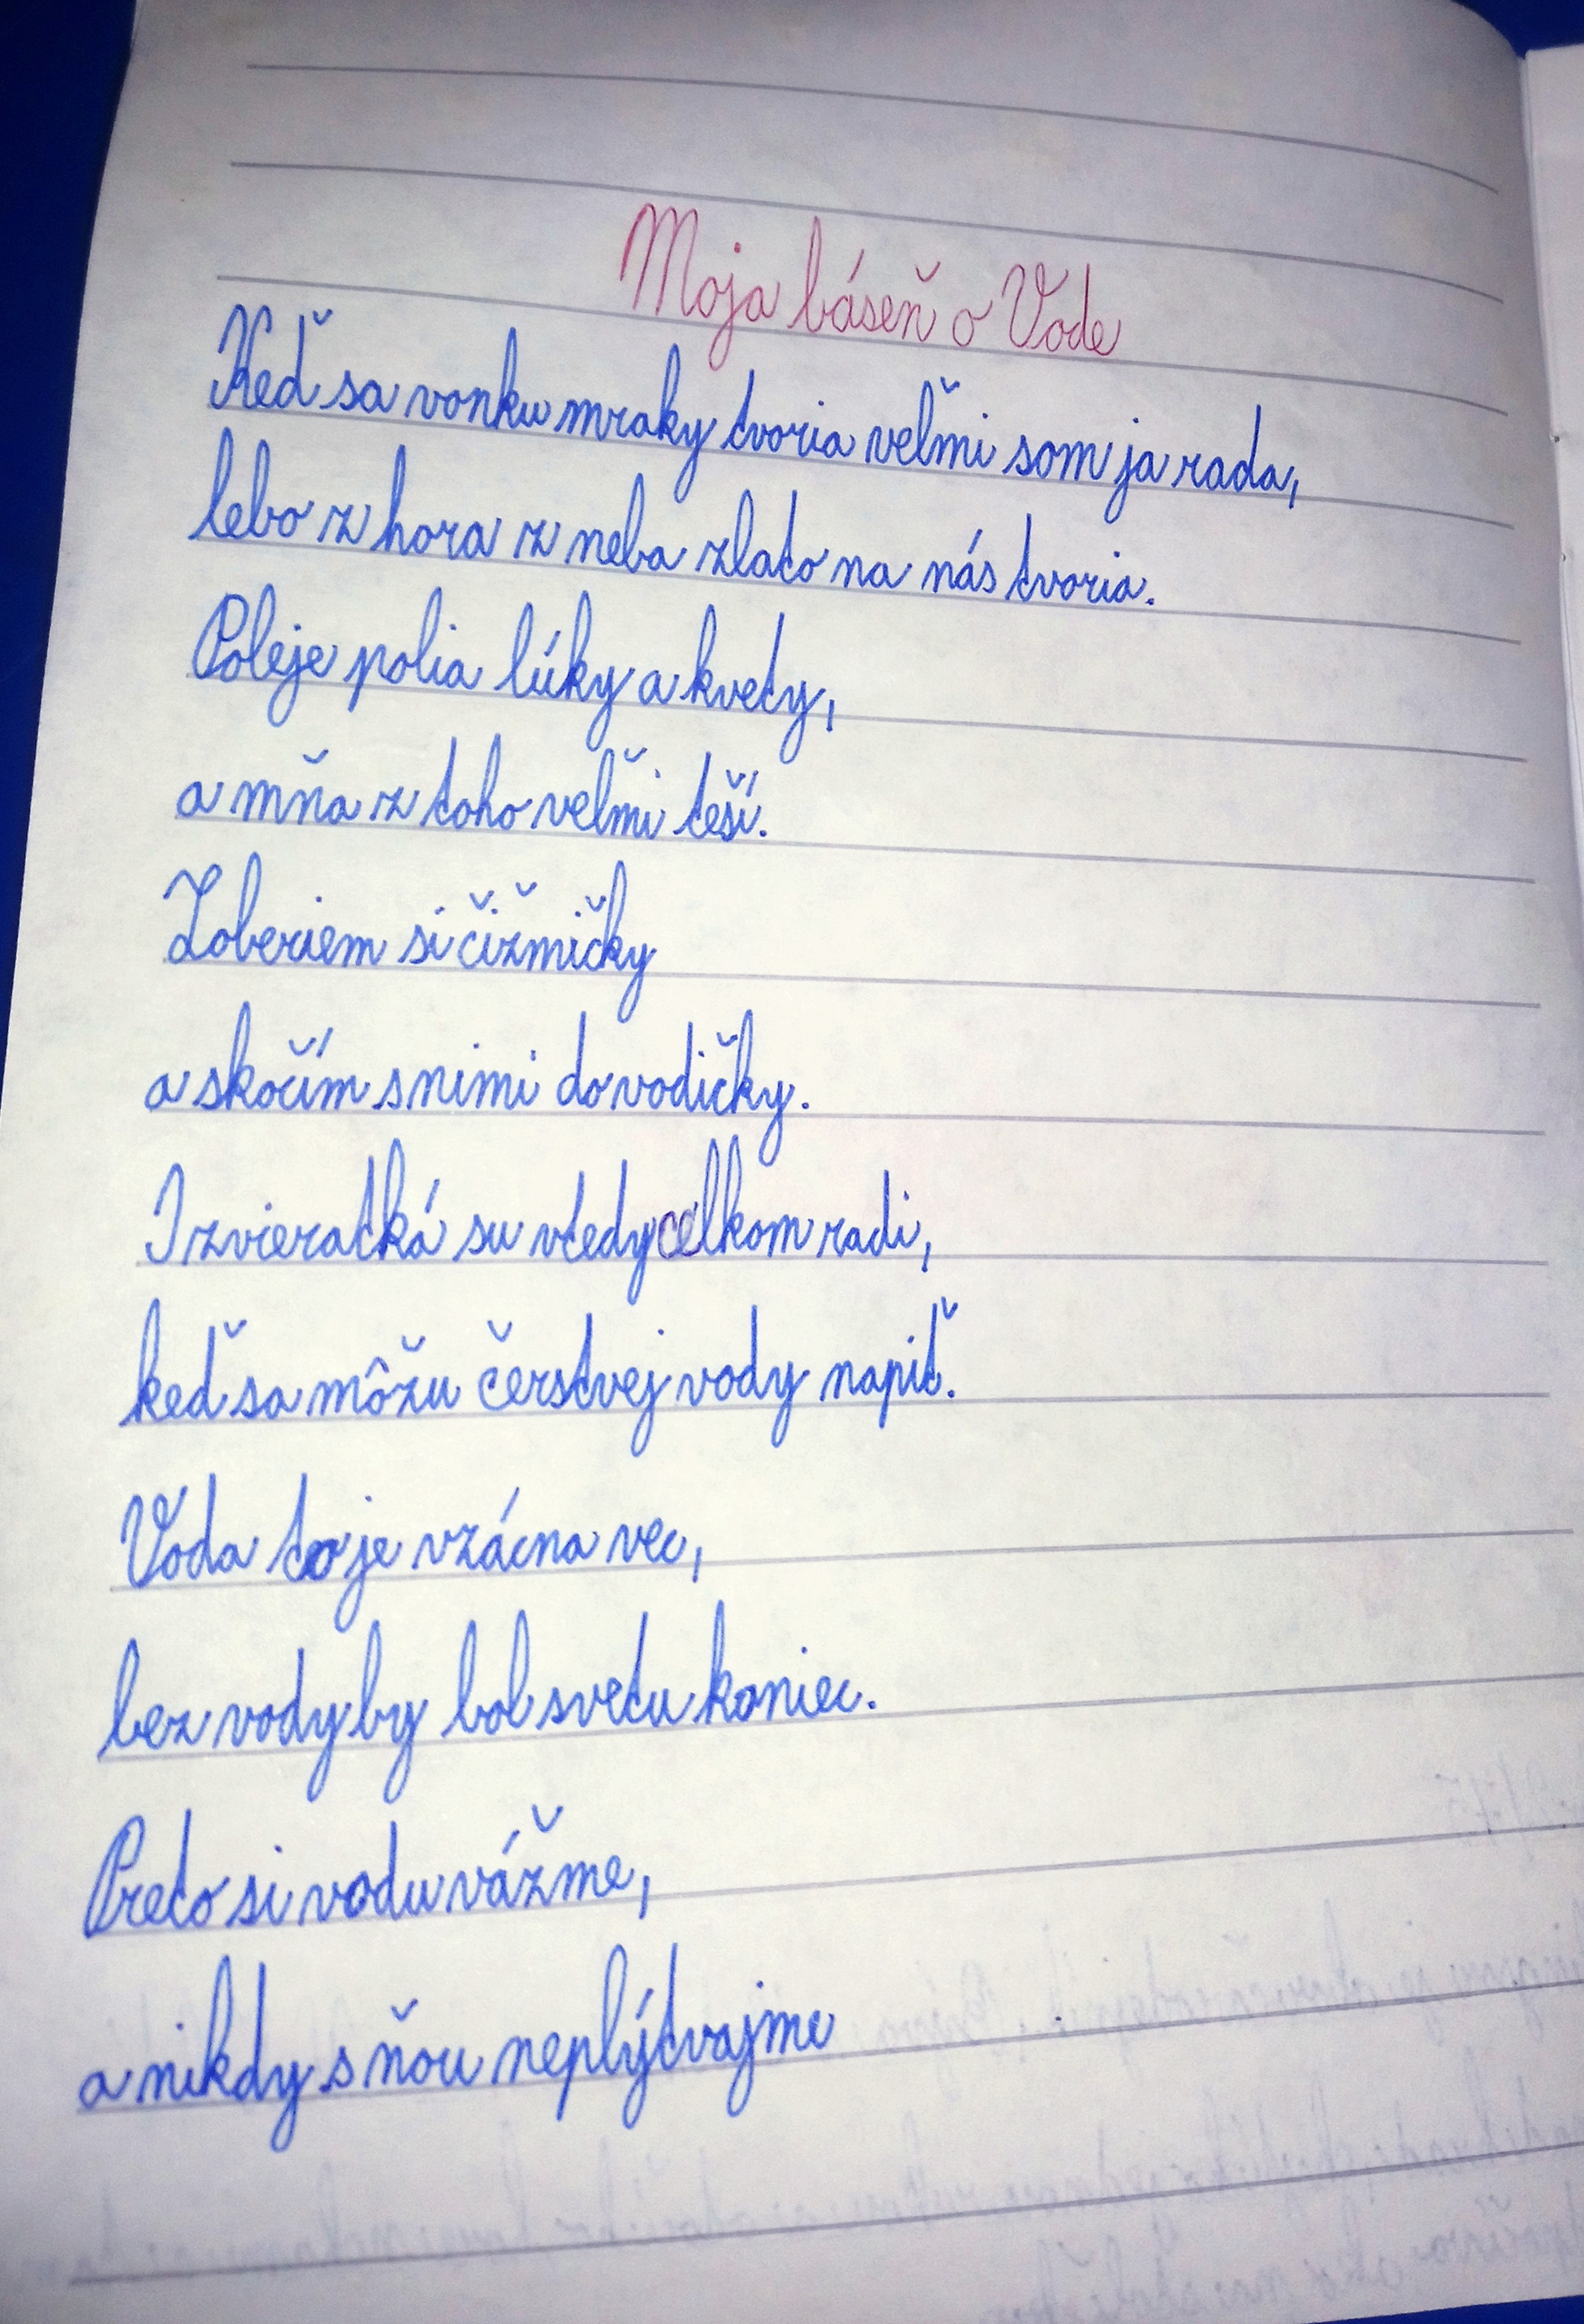 Moja báseň o Vode
Keď sa vonku mraky tvoria veľmi som ja rada,
lebo z hora z neba zlato na nás tvoria.
Poleje polia lúky a kvety,
a mňa z toho veľmi teší.
Zoberiem si čižmičky
a skočím s nimi do vodičky.
I zvieratká su vtedy celkom radi,
keď sa môžu čerstvej vody napiť.
Voda to je vzácna vec,
bez vody by bol svetu koniec.
Preto si vodu vážme,
a nikdy s ňou neplýtvajme